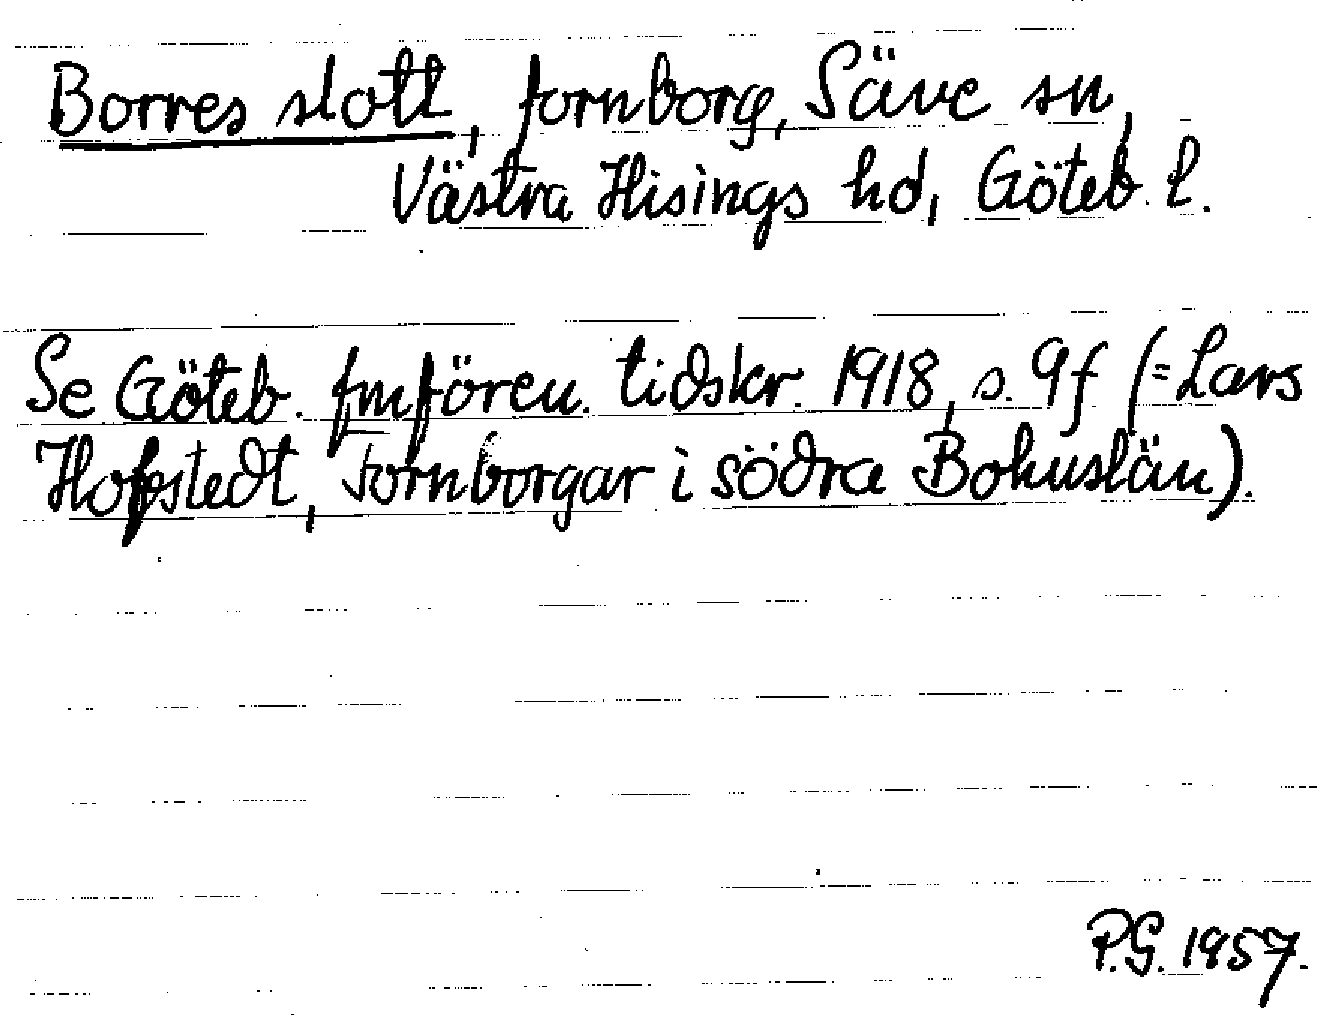 Borres slott, fornborg, Säve sn,
Västra Hisings hd, Göteb. l.
Se Göteb. fmfören. tidskr. 1918, s. 9f (=Lars
Hofstedt, Fornborgar i södra Bohuslän).
P.G. 1957.